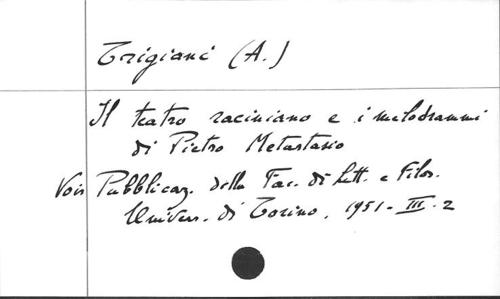 Trigiani (A.)
Il teatro raciniano e i melodrammi
di Pietro Metastasio
Voir Pubblicaz. della Fac. di Lett. e Filos.
Univers. di Torino, 1951 - III. 2